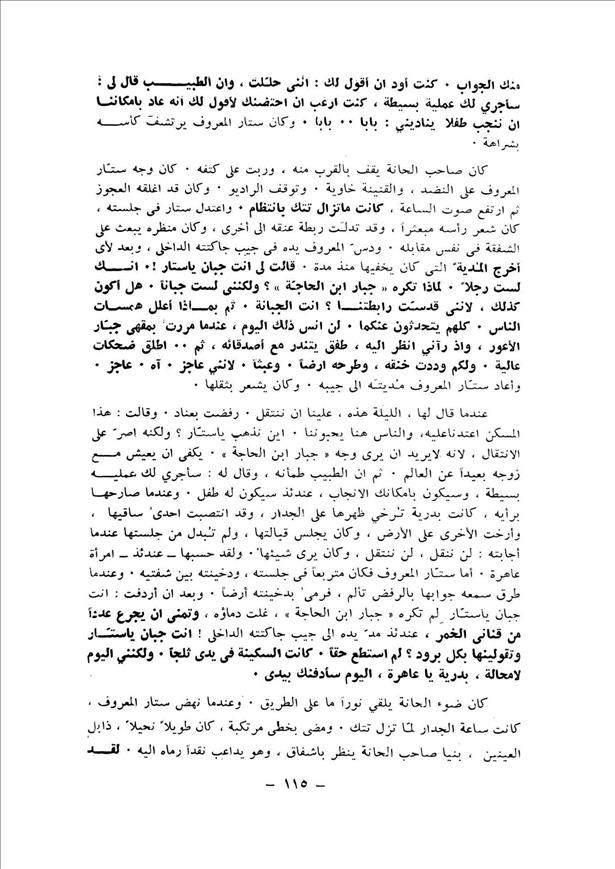 منك الجواب ٠ كنت أود ان أقول لك : انني حللت ، وان الطبيب قال لي :
سأجري لك عملية بسيطة ، كنت ارغب ان احتضنك لأقول لك أنه عاد بامكاننا
ان ننجب طفلا يناديني : بابا ٠٠ بابا ٠ وكان ستار المعروف يرتشف كأسه
بشراهة ٠
كان صاحب الحانة يقف بالقرب منه ، وربت على كتفه ٠ كان وجه ستّار
المعروف على النضد ، والقنينة خاوية ٠ وتوقف الراديو ٠ وكان قد اغلقه العجوز
ثم ارتفع صوت الساعة ، كانت ماتزال تتك بانتظام ٠ واعتدل ستار في جلسته ،
كان شعر رأسه مبعثراً ، وقد تدلت ربطة عنقه الى أخرى ، وكان منظره يبعث على
الشفقة في نفس مقابله ٠ ودسّ المعروف يده في جيب جاكتته الداخلي ، وبعد لأى
أخرج المدية التي كان يخفيها منذ مدة ٠ قالت لي انت جبان ياستار !٠ انك
لست رجلاً ٠ لماذا تكره « جبار ابن الحاجّة » ؟ ولكنني لست جباناً ٠ هل أكون
كذلك ، لانني قدست رابطتنا ؟ انت الجبانة ٠ ثم بماذا أعلل همسات
الناس ٠ كلهم يتحدثون عنكما ٠ لن انس ذلك اليوم ، عندما مررت بمقهى جبّار
الأعور ، واذ رآني انظر اليه ، طفق يتندر مع أصدقائه ، ثم ٠٠ اطلق ضحكات
عالية ٠ ولكم وددت خنقه ، وطرحه ارضاً ٠ وعبثاً ٠ لانني عاجز ٠ آه ٠ عاجز ٠
وأعاد ستار المعروف مديته الى جيبه ٠ وكان يشعر بثقلها ٠
عندما قال لها ، الليلة هذه ، علينا ان ننتقل ٠ رفضت بعناد ٠ وقالت : هذا
المسكن اعتدناعليه، والناس هنا يحبوننا ٠ اين نذهب ياستار ؟ ولكنه اصرّ على
الانتقال ، لانه لايريد ان يرى وجه « جبار ابن الحاجة » ٠ يكفى ان يعيش مع
زوجه بعيداً عن العالم ٠ ثم ان الطبيب طمأنه ، وقال له : سأجري لك عملية
بسيطة ، وسيكون بامكانك الانجاب ، عندئذ سيكون له طفل ٠ وعندما صارحها
برأيه ، كانت بدرية ترخي ظهرها على الجدار ، وقد انتصبت احدى ساقيها ،
وأرخت الأخرى على الأرض ، وكان يجلس قبالتها ، ولم تبدل من جلستها عندما
أجابته : لن ننقل ، لن ننتقل ، وكان يرى شيئها ٠ ولقد حسبها ــ عندئذ ــ امرأة
عاهرة ٠ أما ستار المعروف فكان متربعاً في جلسته ، ودخينته بين شفتيه ٠ وعندما
طرق سمعه جوابها بالرفض تألم ، فرمى بدخينته أرضاً ٠ وبعد ان أردفت : انت
جبان ياستار لم تكره « جبار ابن الحاجة » ، غلت دماؤه ، وتمنى ان يجرع عدداً
من قناني الخمر ، عندئذ مدّ يده الى جيب جاكتته الداخلي ! انت جبان ياستار
وتقولينها بكل برود ؟ لم استطع حقاً ٠ كانت السكينة في يدى ثلجاً ٠ ولكنني اليوم
لامحالة ، بدرية يا عاهرة ، اليوم سأدفنك بيدى ٠
كان ضوء الحانة يلقي نوراً ما على الطريق ٠ وعندما نهض ستار المعروف ،
كانت ساعة الجدار لمّا تزل تتك ٠ ومضى بخطى مرتكبة ، كان طويلاً نحيلاً ، ذابل
العينين ، بنيا صاحب الحانة ينظر باشفاق ، وهو يداعب نقداً رماه اليه ٠ لقد
– ١١٥ –